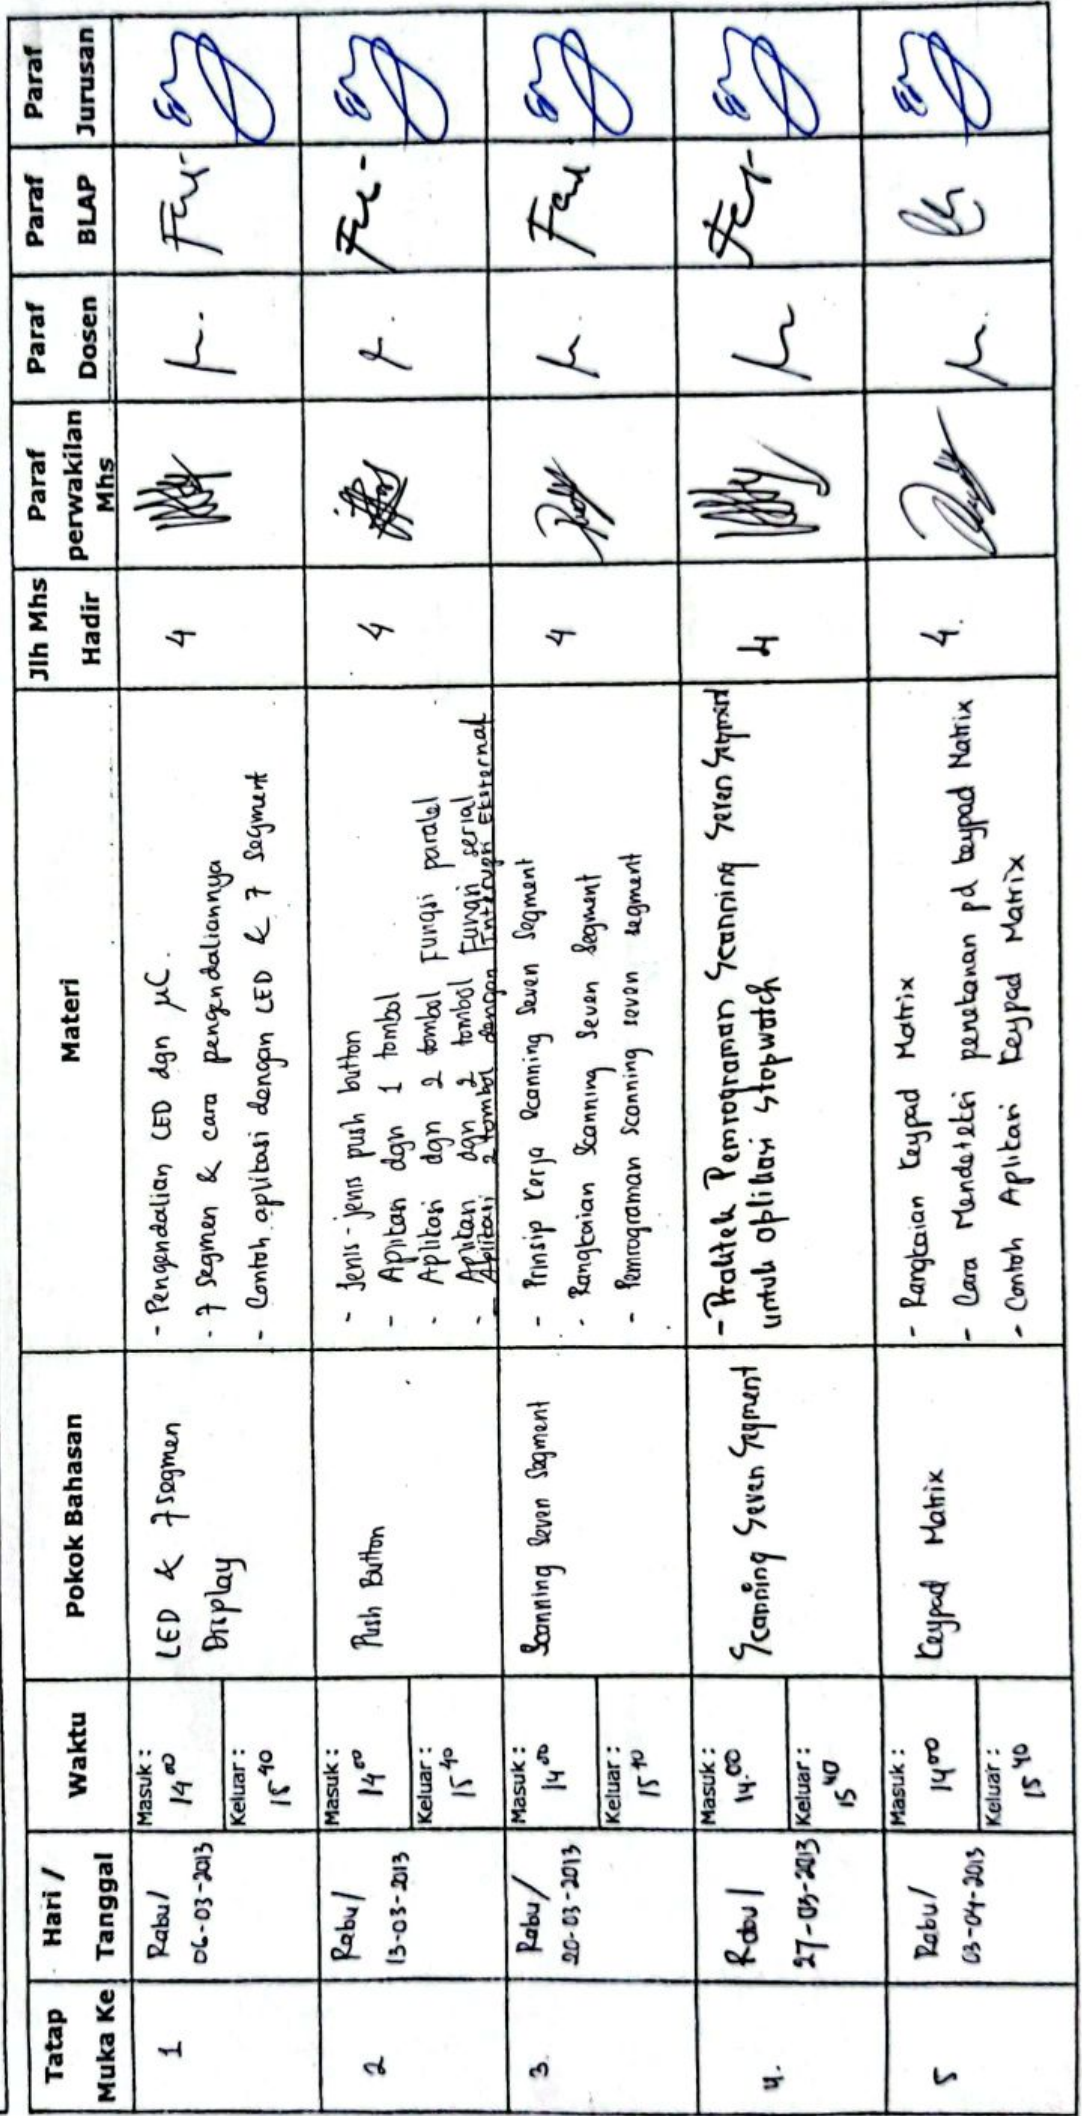 Tatap Muka Ke
Hari / Tanggal
Waktu
Pokok Bahasan
Materi
Jlh Mhs Hadir
Paraf perwakilan Mhs
Paraf Dosen
Paraf BLAP
Paraf Jurusan
1
Rabu/
06-03-2013
Masuk :
14 00
Keluar :
15 40
LED & 7 segmen
Display
- Pengendalian LED dgn μC.
- 7 segmen & cara pengendaliannya
- Contoh aplikasi dengan LED & 7 segment
4
2
Rabu/
13-03-2013
Masuk :
14 00
Keluar :
15 40
Push Button
- Jenis-jenis push button
- Aplikasi dgn 1 tombol
- Aplikasi dgn 2 tombol Fungsi paralel
- Aplikasi dgn 2 tombol Fungsi serial
- Aplikasi 2 tombol dengan Interupsi Eksternal
4
3.
Rabu/
20-03-2013
Masuk :
14 00
Keluar :
15 40
Scanning Seven Segment
- Prinsip Kerja Scanning Seven Segment
- Rangkaian Scanning Seven Segment
- Pemrograman Scanning seven segment
4
4.
Rabu/
27-03-2013
Masuk :
14.00
Keluar :
15 40
Scanning Seven Segment
- Praktek Pemrograman Scanning Seven Segment
untuk aplikasi stopwatch
4
5
Rabu/
03-04-2013
Masuk :
14 00
Keluar :
15 40
Keypad Matrix
- Rangkaian Keypad Matrix
- Cara Mendeteksi penekanan pd keypad Matrix
- Contoh Aplikasi Keypad Matrix
4.